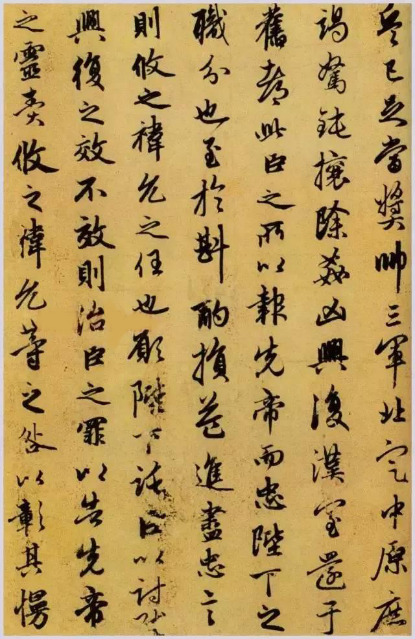 兵已足當獎帥三軍北定中原庶
竭駑鈍攘除姦凶興復漢室還于
舊都此臣之所以報先帝而忠陛下之
職分也至於斟酌損益進盡忠言
則攸之禕允之任也願陛下託臣以討賊
興復之效不效則治臣之罪以告先帝
之靈責攸之禕允等之咎以彰其慢